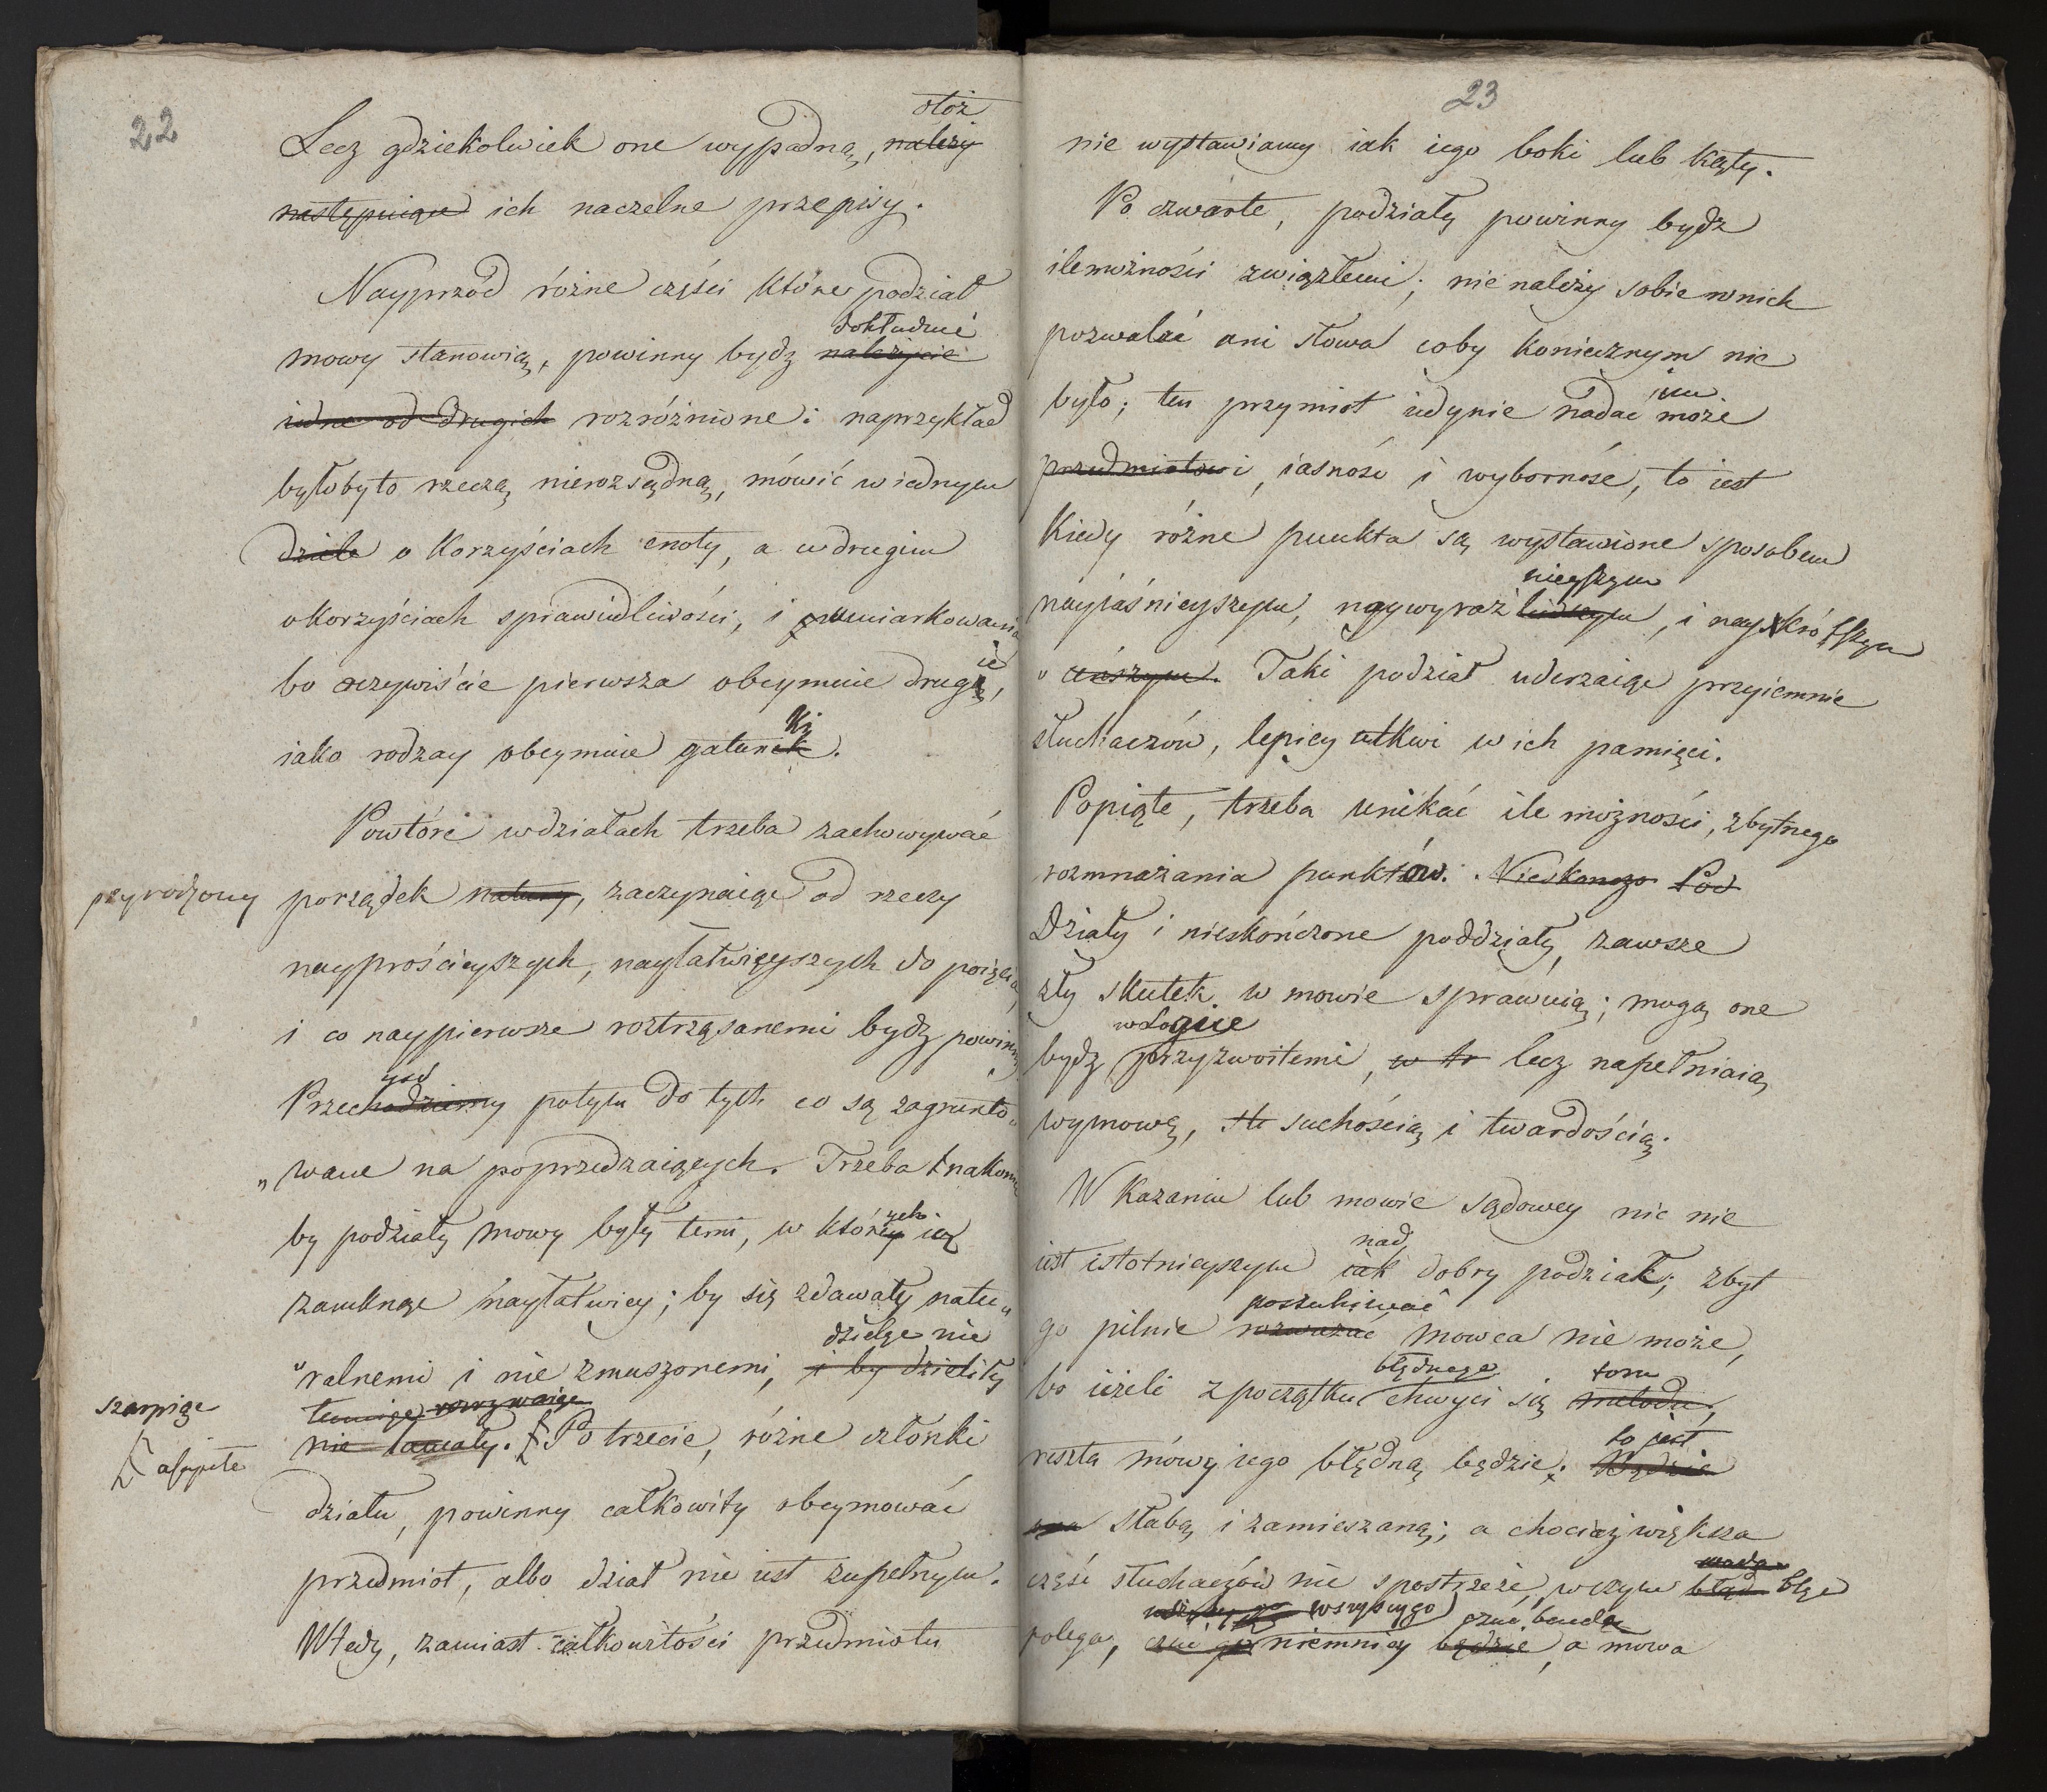 22
otoż
Lecz gdziekolwiek one wypadną, należy
następuiące ich naczelne przepisy.
Nayprzód różne części które podział
dokładnie
mowy stanowią, powinny bydź należycie
iedne od drugich rozróżnione: naprzykład
byłoby to rzeczą nierozsądną, mówić w iednym
dziele o korzyściach cnoty, a w drugim
o korzyściach sprawiedliwości, i umiarkowania
bo oczywiście pierwsza obeymuie drugie,
ki
iako rodzay obeymuie gatunek.
Powtóre w działach trzeba zachowywać
przyrodzony porządek natury, zaczynaiąc od rzeczy
nayprościeyszych, nayłatwieyszych do poięcia,
i co naypierwsze roztrząsanemi bydź powinny
Przechodziemy potym do tych co są zagrunto„
„wane na poprzedzaiących. Trzeba
zek
by podziały mowy były temi, w których ią
zamknąć nayłatwiey; by się zdawały natu„
dzieląc nie
„ralnemi i nie zmuszonemi, i by dzieliły
szarpiąc
nie łamały. Po trzecie, różne członki
działu, powinny całkowity obeymować
przedmiot, albo dział nie iest zupełnym.
Wtedy, zamiast całkowitości przedmiotu
23
nie wystawiamy iak iego boki lub kąty.
Po czwarte, podziały powinny bydź
ilemożności zwięzłemi; nie należy sobie w nich
pozwalać ani słowa coby koniecznym nie
im
było; ten przymiot iedynie nadać może
przedmiotowi, iasność i wyborność, to iest
kiedy różne punkta są wystawione sposobem
nieyszym
nayiaśnieyszym, naywyraź, i naykrótszym
Taki podział uderzaiąc przyiemnie
słuchaczów, lepiey utkwi w ich pamięci.
Popiąte, trzeba unikać ile możności, zbytnego
rozmnażania punktów. Nieskończo Pod
Działy i nieskończone poddziały, zawsze
zły skutek w mowie sprawuią; mogą one
w Logice
bydź przyzwoitemi, w tr lecz napełniaią
wymowę, st suchością i twardością.
W Kazaniu lub mowie sądowey nic nie
nad
iest istotnieyszym iak dobry podział; zbyt
poszukiwać
go pilnie rozważać mowca nie może,
błędnego toru
bo ieżeli z początku chwyci się metodu,
to jest
reszta mówy iego błędną będzie: Będzie
ona słabą i zamieszaną; a chociaż większa
wada
część słuchaczów nie spostrzeże, w czym błąd błąd
wszyscy go czuć będą
polega, czuć go niemniey będzie, a mowa